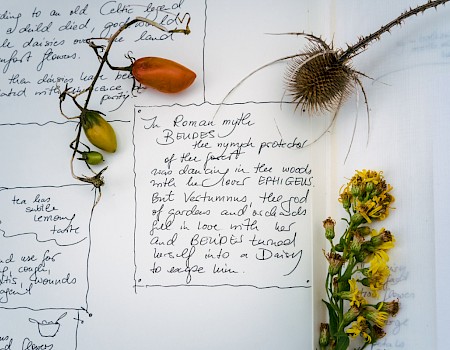 ding to an old Celtic legend
a child died, god
le daisies over the land
comfort flowers.
then daisies have be
iated with innocence
purity
In Roman myth
BELIDES
the nymph protector
of the forest
was dancing in the woods
with her lover EPHIGEUS.
But Vertumnus, the god
of gardens and orchards
fell in love with her
and BELIDES turned
herself into a Daisy
to escape him.
tea has
subtle
lemony
taste
nd use for
cough,
wounds
agent
flowers